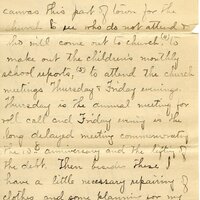 canvas this part of town for the
church & see who do not attend &
who will come out to church, (4) to
make out the children's monthly
school reports, (5) to attend the church
meetings Thursday & Friday evenings.
Thursday is the annual meeting for
roll call and Friday evening is the
long delayed meeting commemorating
the 10th anniversary and the lifting of
the debt. Then besides these I
have a little necessary repairing of
clothes and some planning for my